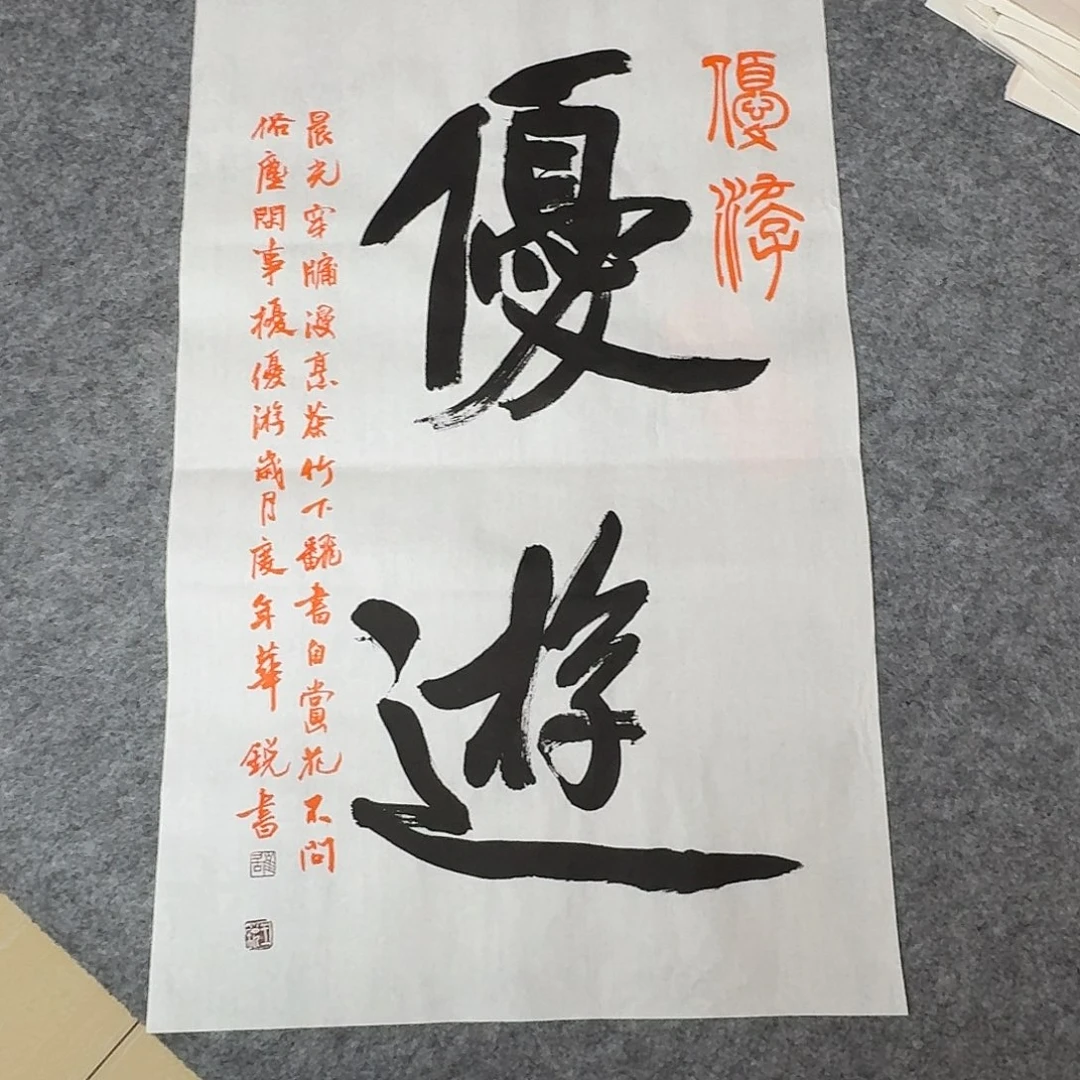 優游
優遊
晨光穿牖漫烹茶竹下飜書自賞花不問
俗塵閑事擾優游歲月度年華 銳書